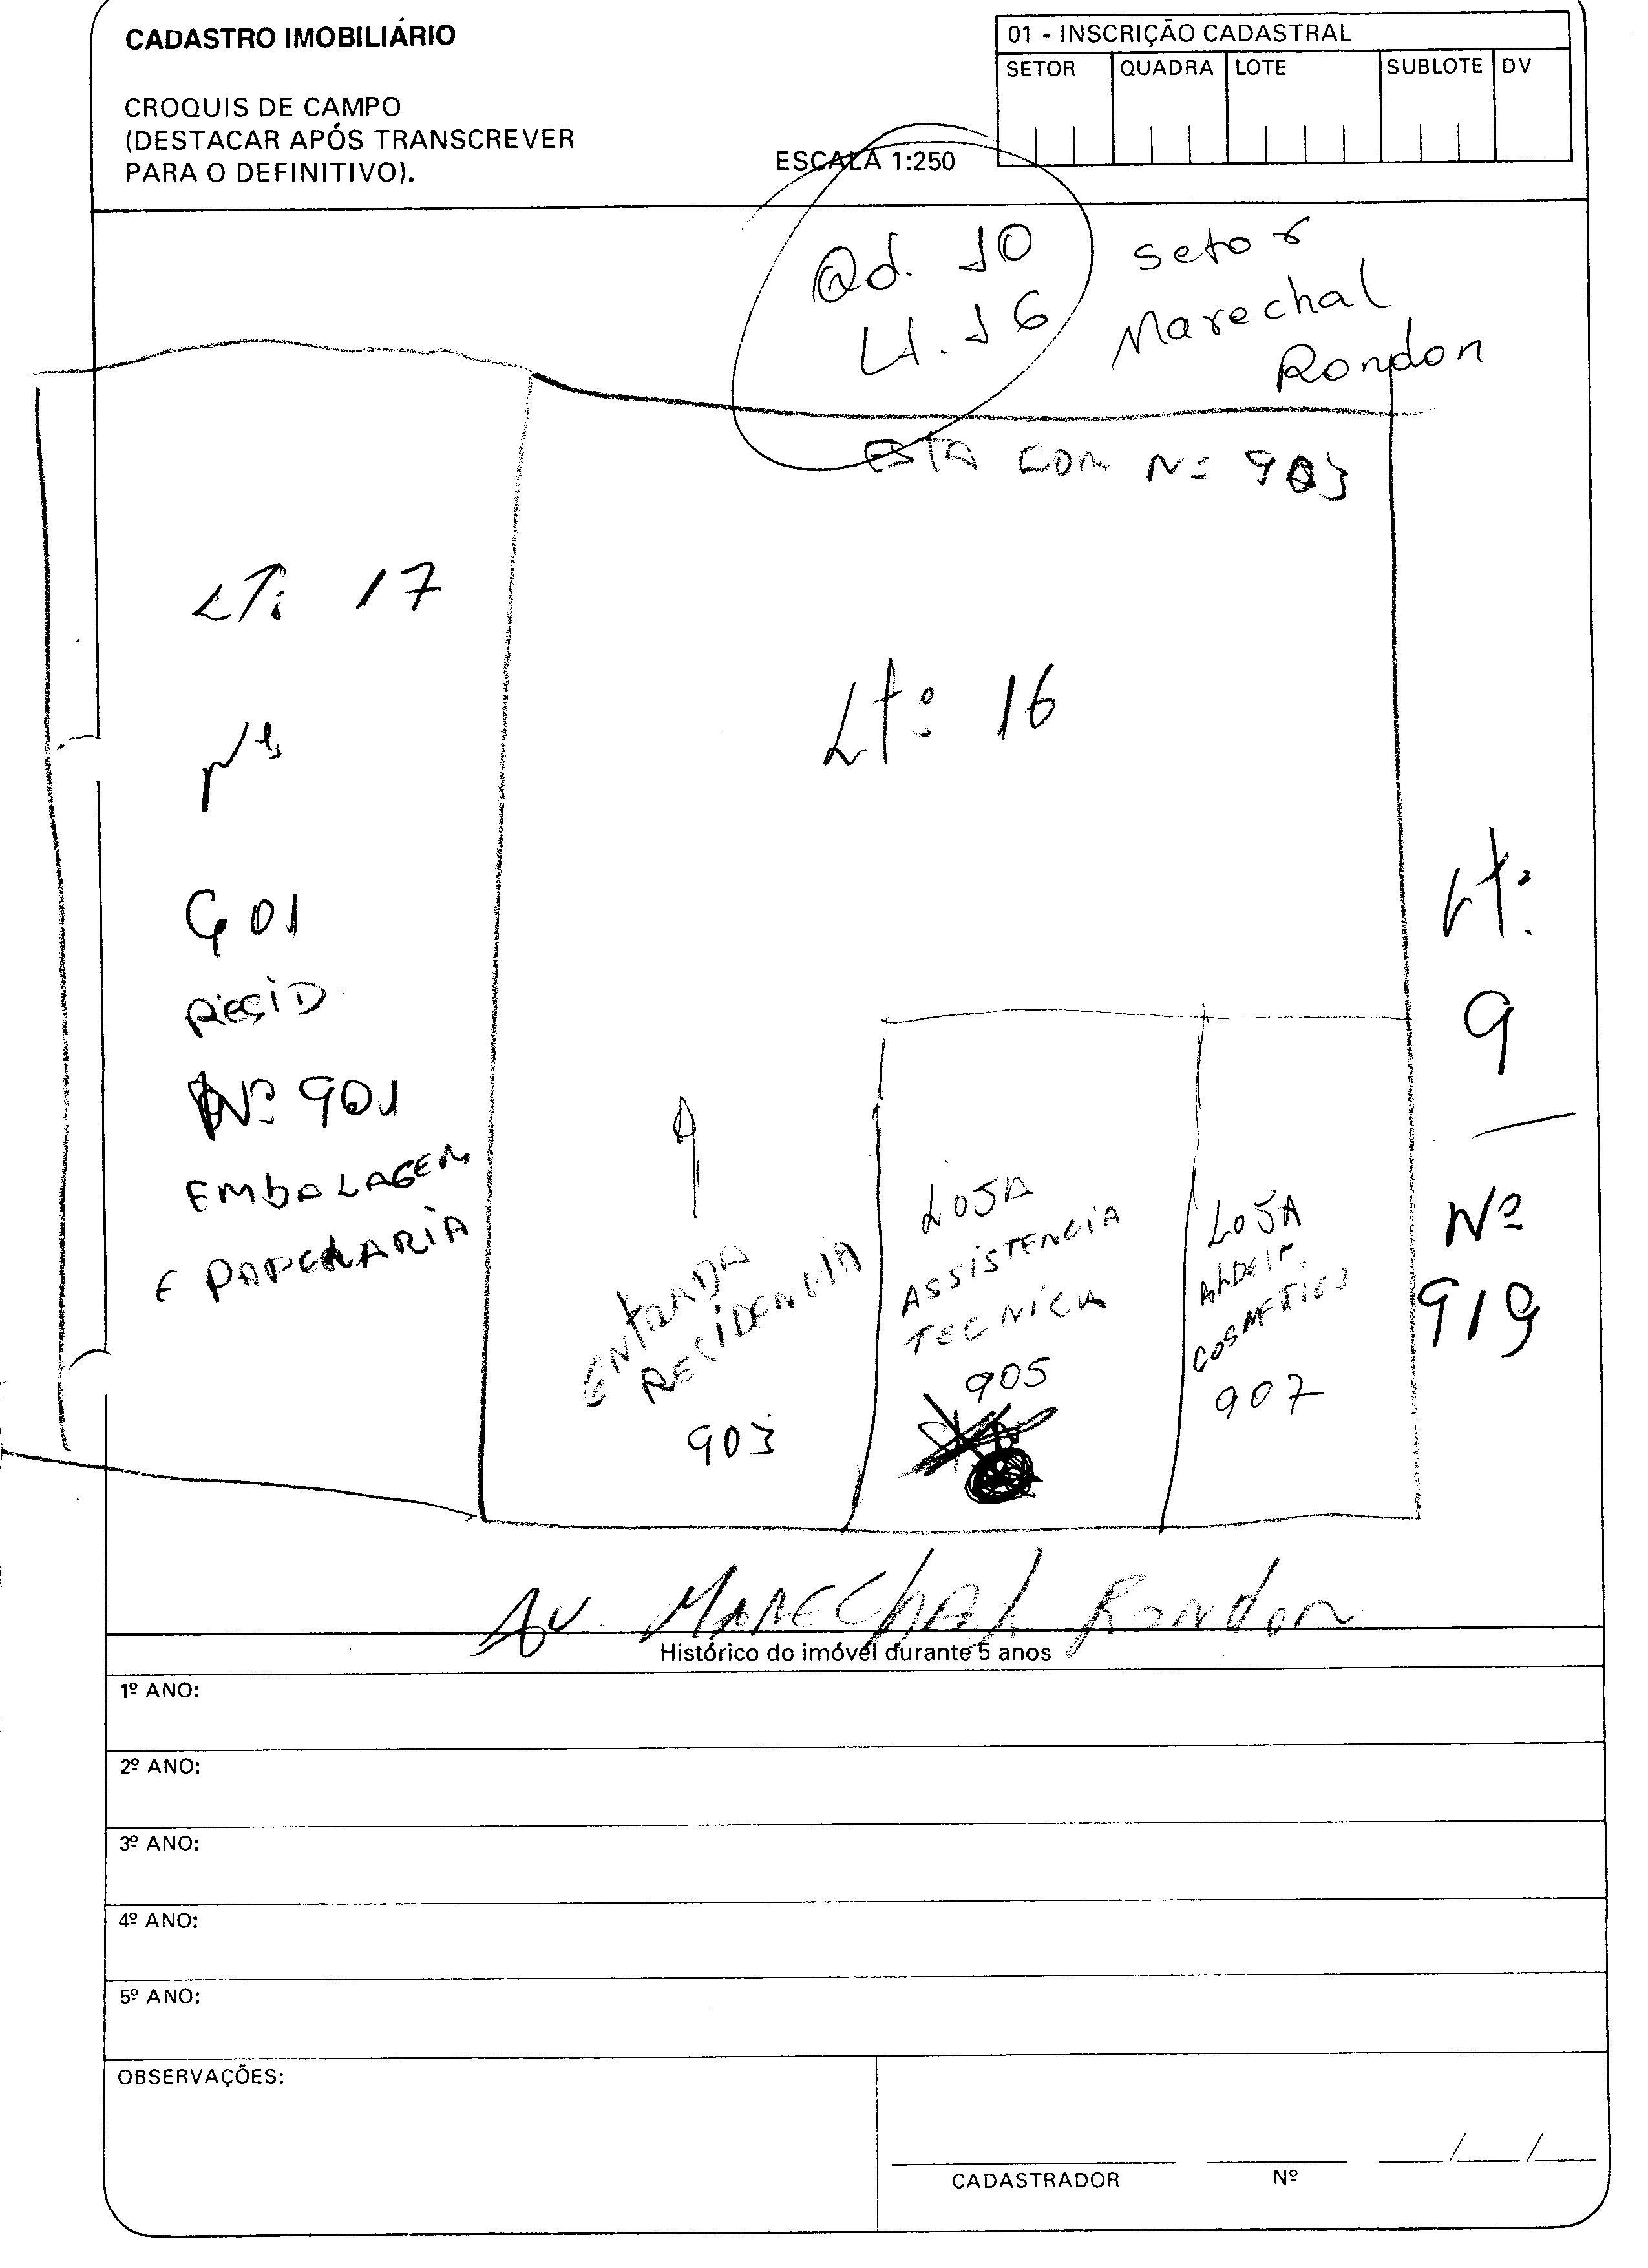 CADASTRO IMOBILIÁRIO
CROQUIS DE CAMPO
(DESTACAR APÓS TRANSCREVER
PARA O DEFINITIVO).
ESCALA 1:250
01 - INSCRIÇÃO CADASTRAL
SETOR QUADRA LOTE SUBLOTE DV
Qd. 10
Lt. 16
Setor
Marechal
Rondon
ESTA COM Nº 903
LT: 17
Nº
901
RESID.
Nº 901
EMBALAGEM
E PAPELARIA
Ltº 16
ENTRADA
RESIDENCIA
903
LOJA
ASSISTENCIA
TECNICA
905
LOJA
COSMETICO
907
Lt.
9
Nº
919
AV. MARECHAL RONDON
Histórico do imóvel durante 5 anos
1º ANO:
2º ANO:
3º ANO:
4º ANO:
5º ANO:
OBSERVAÇÕES:
CADASTRADOR Nº